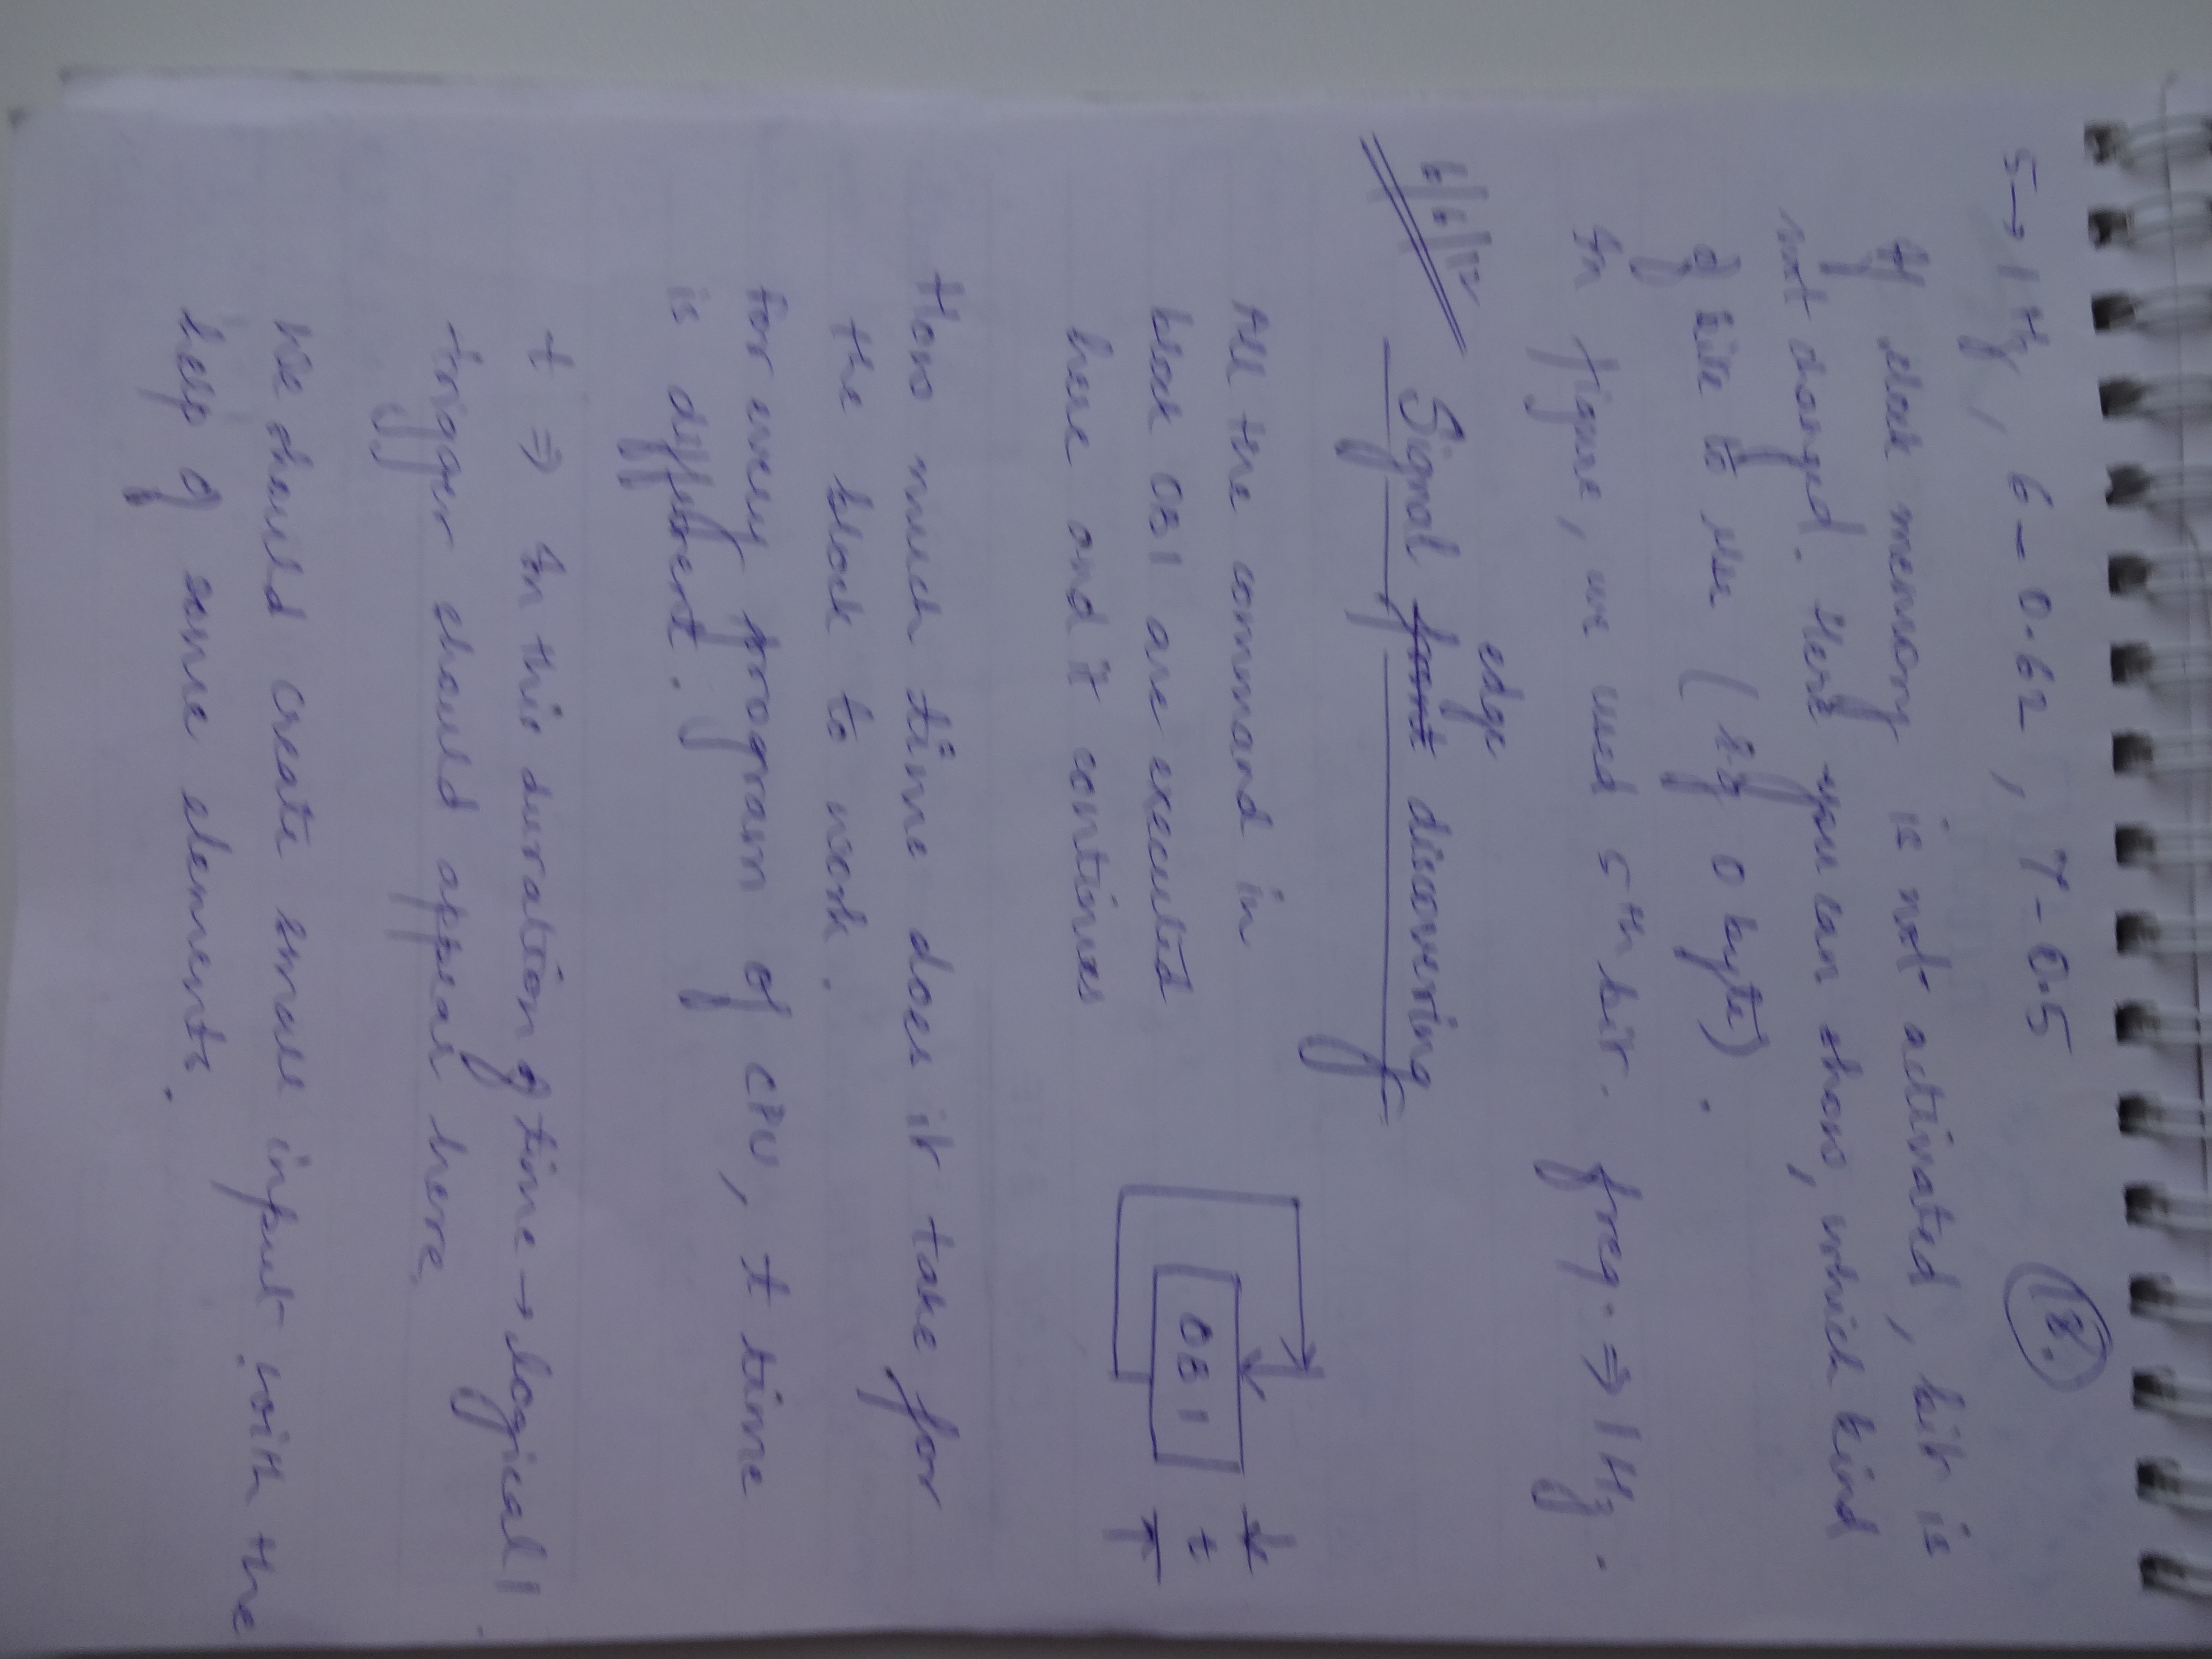 18.
5 → 1 Hz, 6 - 0.62, 7 - 0.5
If clock memory is not activated, bit is
not changed. Here you can show, which kind
of bite to use (eg 0 byte).
In figure, we used 5th bit. freq. ⇒ 1 Hz.
edge
Signal front discovering
All the command in
block OB1 are executed
here and it continues
OB1
t
How much time does it take for
the block to work.
For every program of CPU, t time
is different.
t ⇒ In this duration of time → logical 1
trigger should appear here.
We should create small input with the
help of some elements.